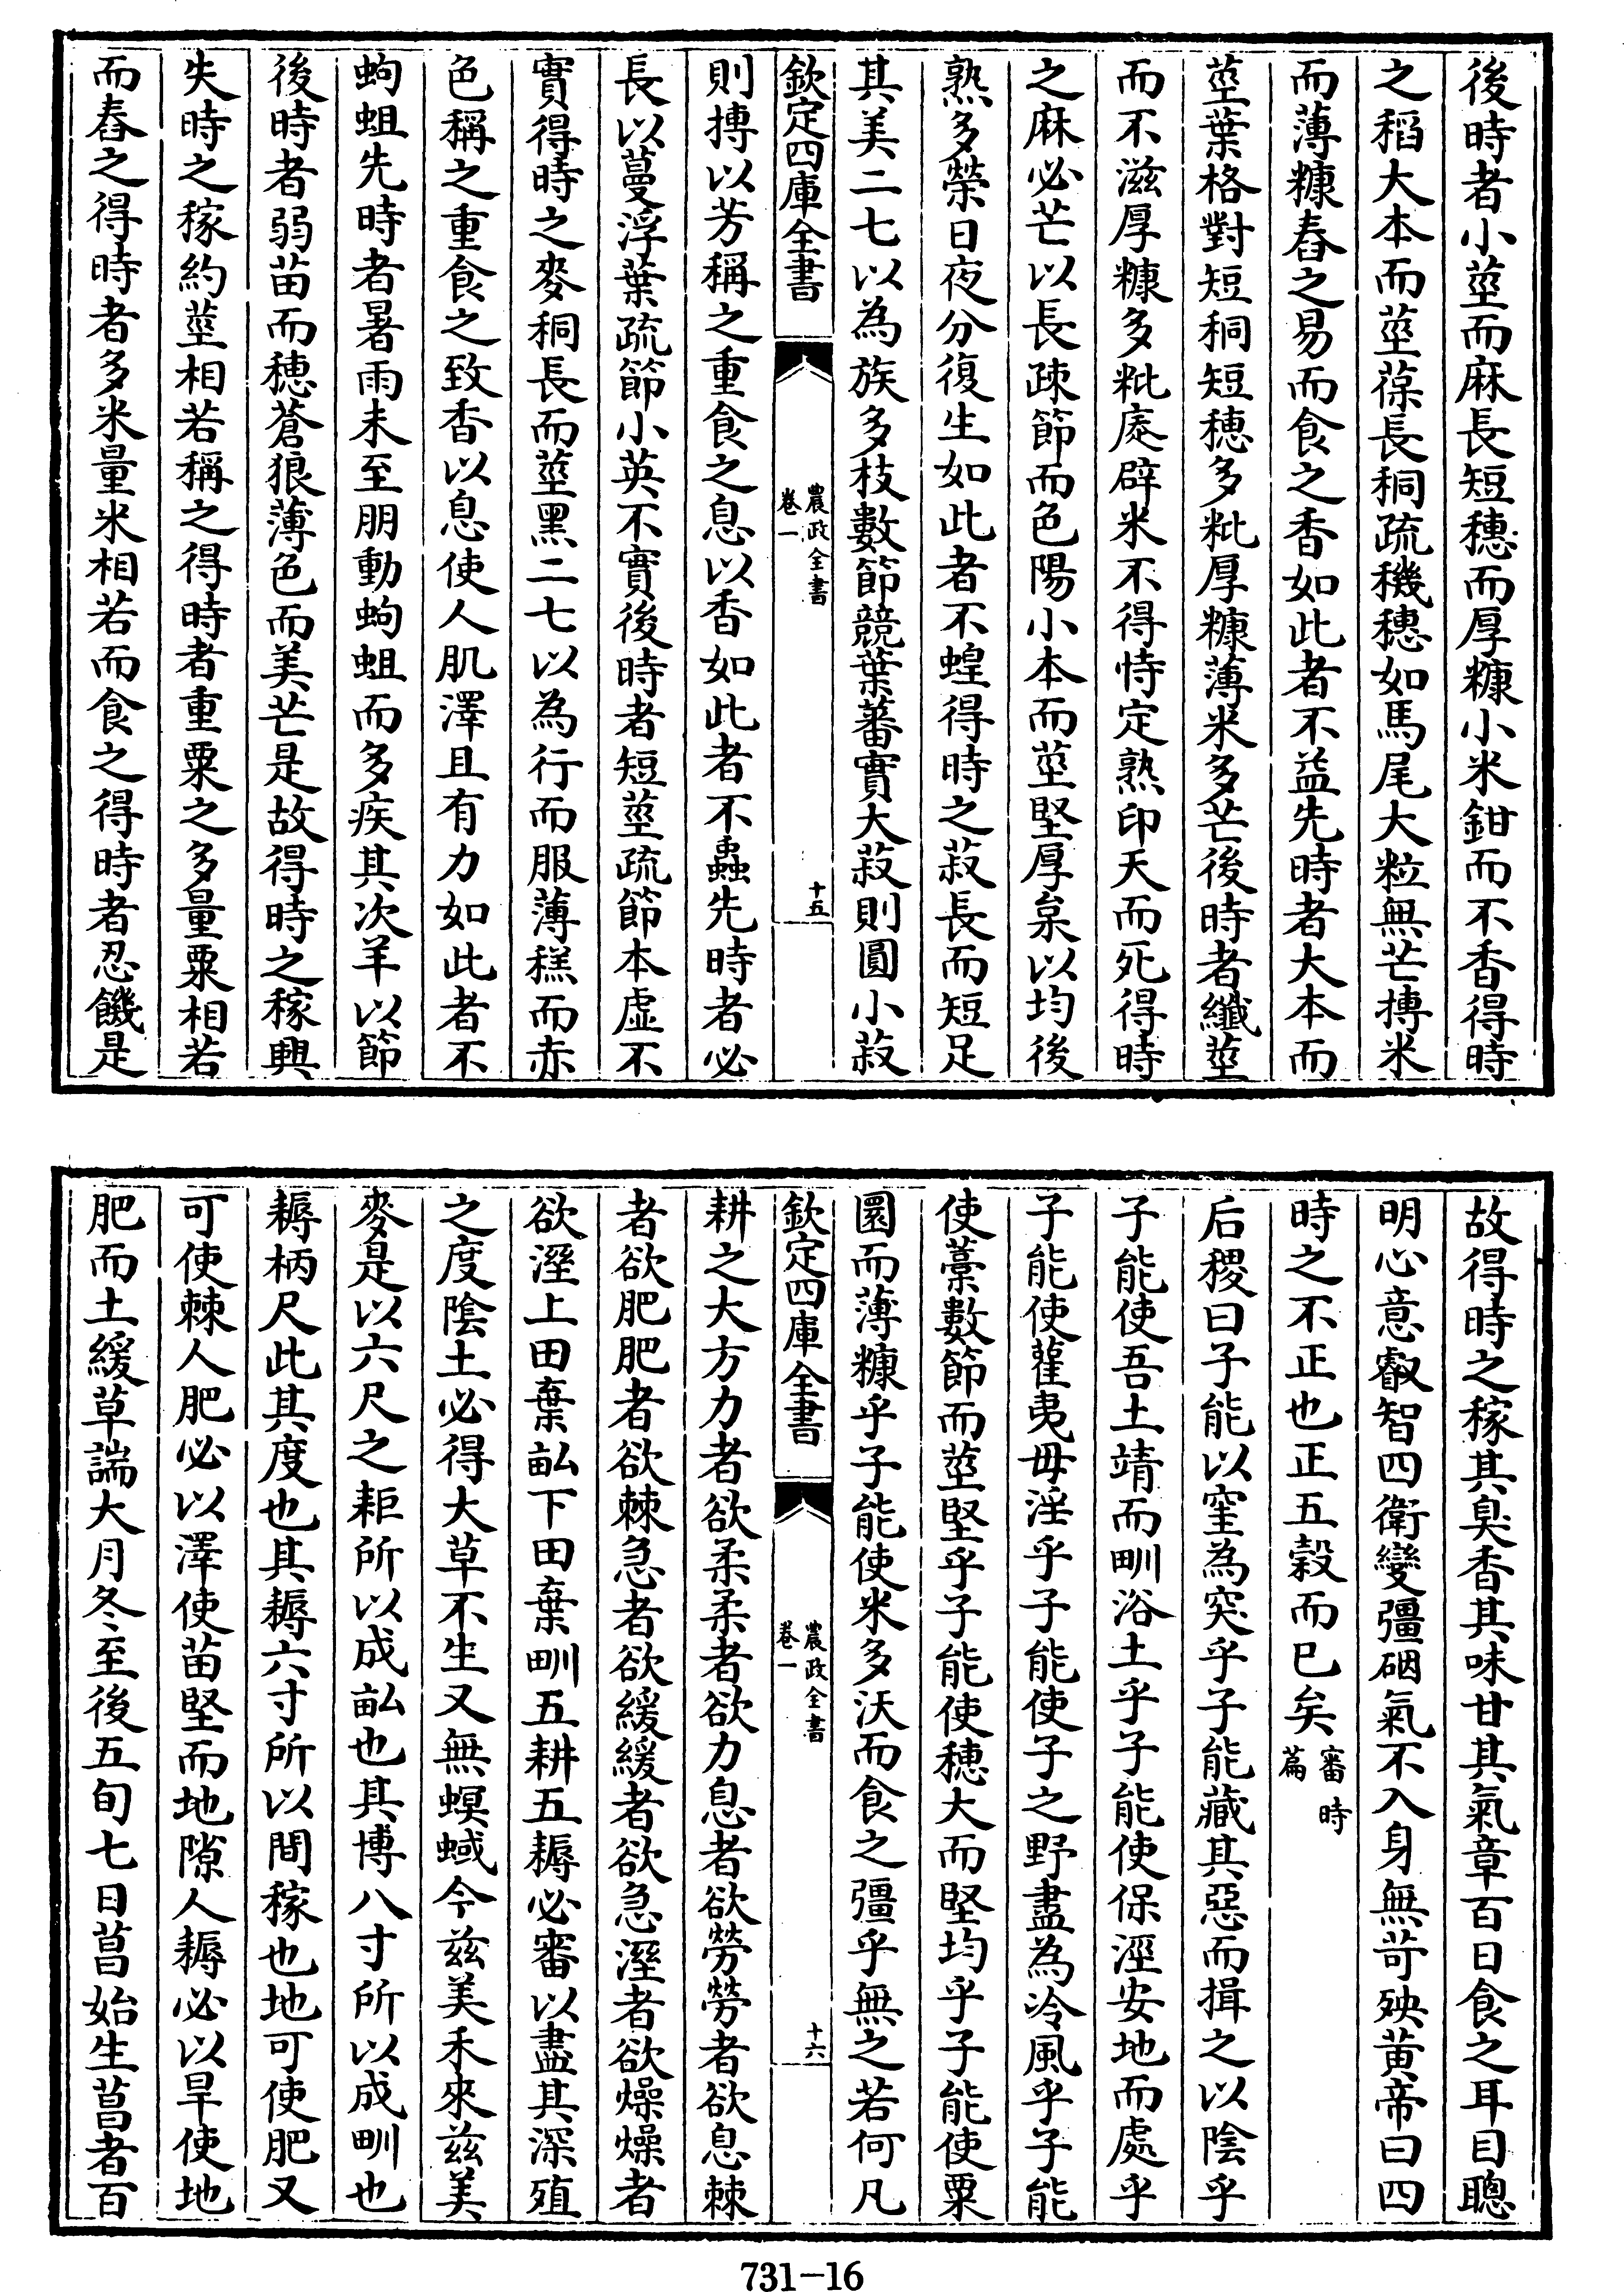 後時者小莖而麻長短穗而厚糠小米鉗而不香得時
之稻大本而莖葆長秱疏穖穗如馬尾大粒無芒搏米
而薄糠舂之易而食之香如此者不益先時者大本而
莖葉格對短秱短穗多粃厚糠薄米多芒後時者纖莖
而不滋厚糠多粃庢辟米不得恃定熟卬天而死得時
之麻必芒以長疎節而色陽小本而莖堅厚枲以均後
熟多榮日夜分復生如此者不蝗得時之菽長而短足
其美二七以為族多枝數節競葉蕃實大菽則圓小菽
欽定四庫全書
農政全書
卷一
十五
則搏以芳稱之重食之息以香如此者不蟲先時者必
長以蔓浮葉疏節小英不實後時者短莖疏節本虛不
實得時之麥秱長而莖黑二七以為行而服薄糕而赤
色稱之重食之致香以息使人肌澤且有力如此者不
蚼蛆先時者暑雨未至胕動蚼蛆而多疾其次羊以節
後時者弱苗而穗蒼狼薄色而美芒是故得時之稼興
失時之稼約莖相若稱之得時者重粟之多量粟相若
而舂之得時者多米量米相若而食之得時者忍饑是
故得時之稼其臭香其味甘其氣章百日食之耳目聰
明心意叡智四衛變彊㐫氣不入身無苛殃黃帝曰四
時之不正也正五穀而已矣
審時
篇
后稷曰子能以窐為突乎子能藏其惡而揖之以陰乎
子能使吾土靖而甽浴土乎子能使保溼安地而處乎
子能使雚夷毋淫乎子能使子之野盡為泠風乎子能
使藁數節而莖堅乎子能使穗大而堅均乎子能使粟
圜而薄糠乎子能使米多沃而食之彊乎無之若何凡
欽定四庫全書
農政全書
卷一
十六
耕之大方力者欲柔柔者欲力息者欲勞勞者欲息棘
者欲肥肥者欲棘急者欲緩緩者欲急溼者欲燥燥者
欲溼上田棄畝下田棄甽五耕五耨必審以盡其深殖
之度陰土必得大草不生又無螟蜮今茲美禾來茲美
麥是以六尺之耟所以成畝也其博八寸所以成甽也
耨柄尺此其度也其耨六寸所以間稼也地可使肥又
可使棘人肥必以澤使苗堅而地隙人耨必以旱使地
肥而土緩草諯大月冬至後五旬七日菖始生菖者百
731-16